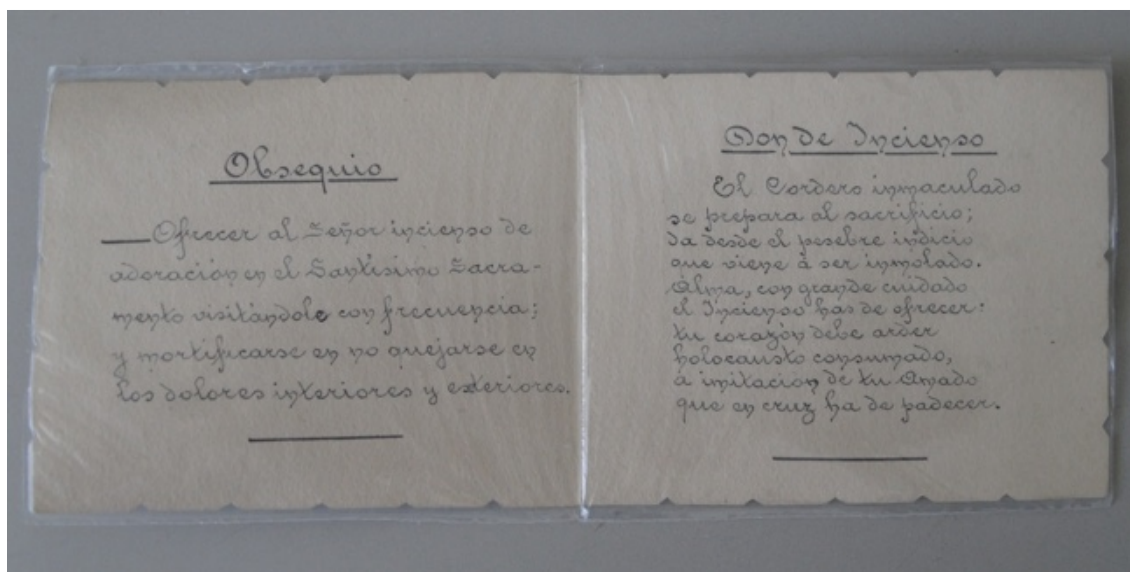 Obsequio
Ofrecer al Señor incienso de
adoración en el Santísimo Sacra-
mento visitándole con frecuencia;
y mortificarse en no quejarse en
los dolores interiores y exteriores.
Don de Incienso
El Cordero inmaculado
se prepara al sacrificio;
da desde el pesebre indicio
que viene à ser inmolado.
Alma, con grande cuidado
el Incienso has de ofrecer:
tu corazón debe arder
holocausto consumado,
a imitación de tu Amado
que en cruz ha de padecer.